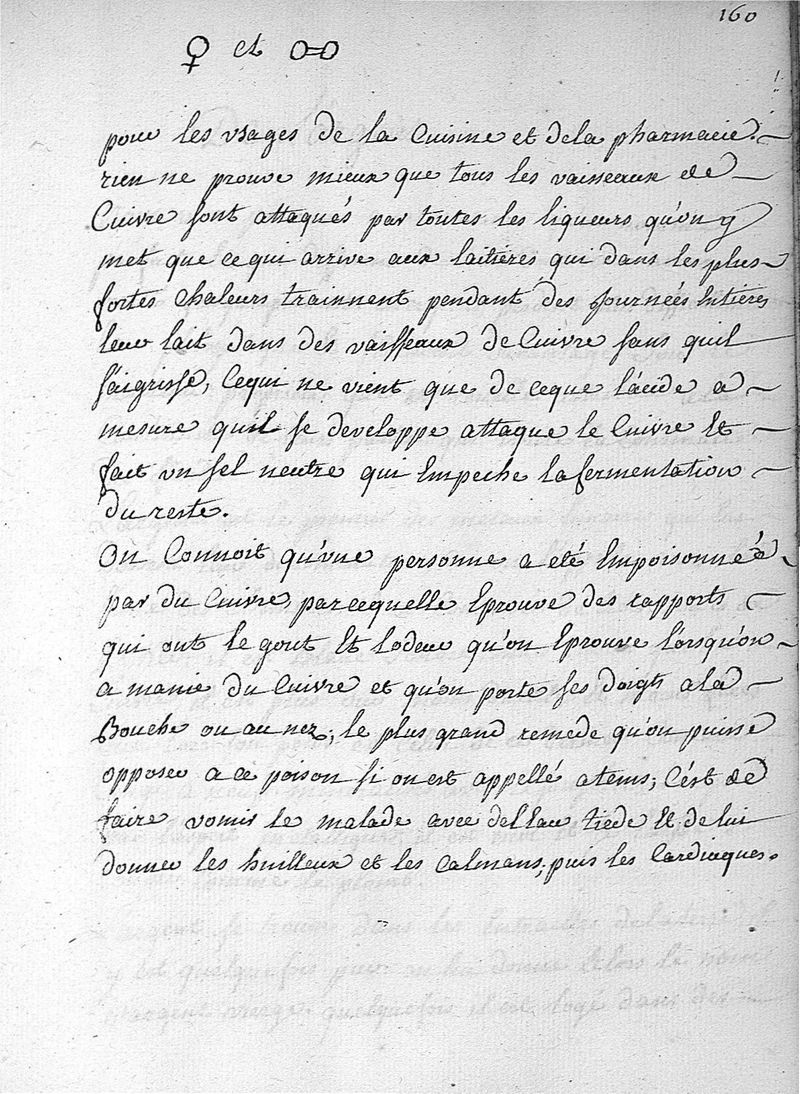 160
♀ et o=o
pour les usages de la Cuisine et de la pharmacie.
rien ne prouve mieux que tous les vaisseaux de
Cuivre sont attaqués par toutes les liqueurs qu'on y
met que ce qui arrive aux laitières qui dans les plus
fortes Chaleurs trainnent pendant des Journeés Entières
leur lait dans des vaisseaux de Cuivre sans quil
s'aigrisse, Cequi ne vient que de ceque l'acide a
mesure quil se developpe attaque le Cuivre Et
fait vn sel neutre qui Empeche la fermentation
du reste.
On Connoit qu'vne personne a eté Empoisonneé
par du Cuivre, parcequelle Eprouve des rapports
qui ont le gout Et lodeur qu'on Eprouve lorsqu'on
a manié du Cuivre et qu'on porte ses doigts a la
Bouche ou au nez; le plus grand remede qu'on puisse
opposer a ce poison si on est appellé a tems; C'ést de
faire vomir le malade avec del'Eau tiede Et de lui
donner les huilleux et les Calmans, puis les Cardiaques.